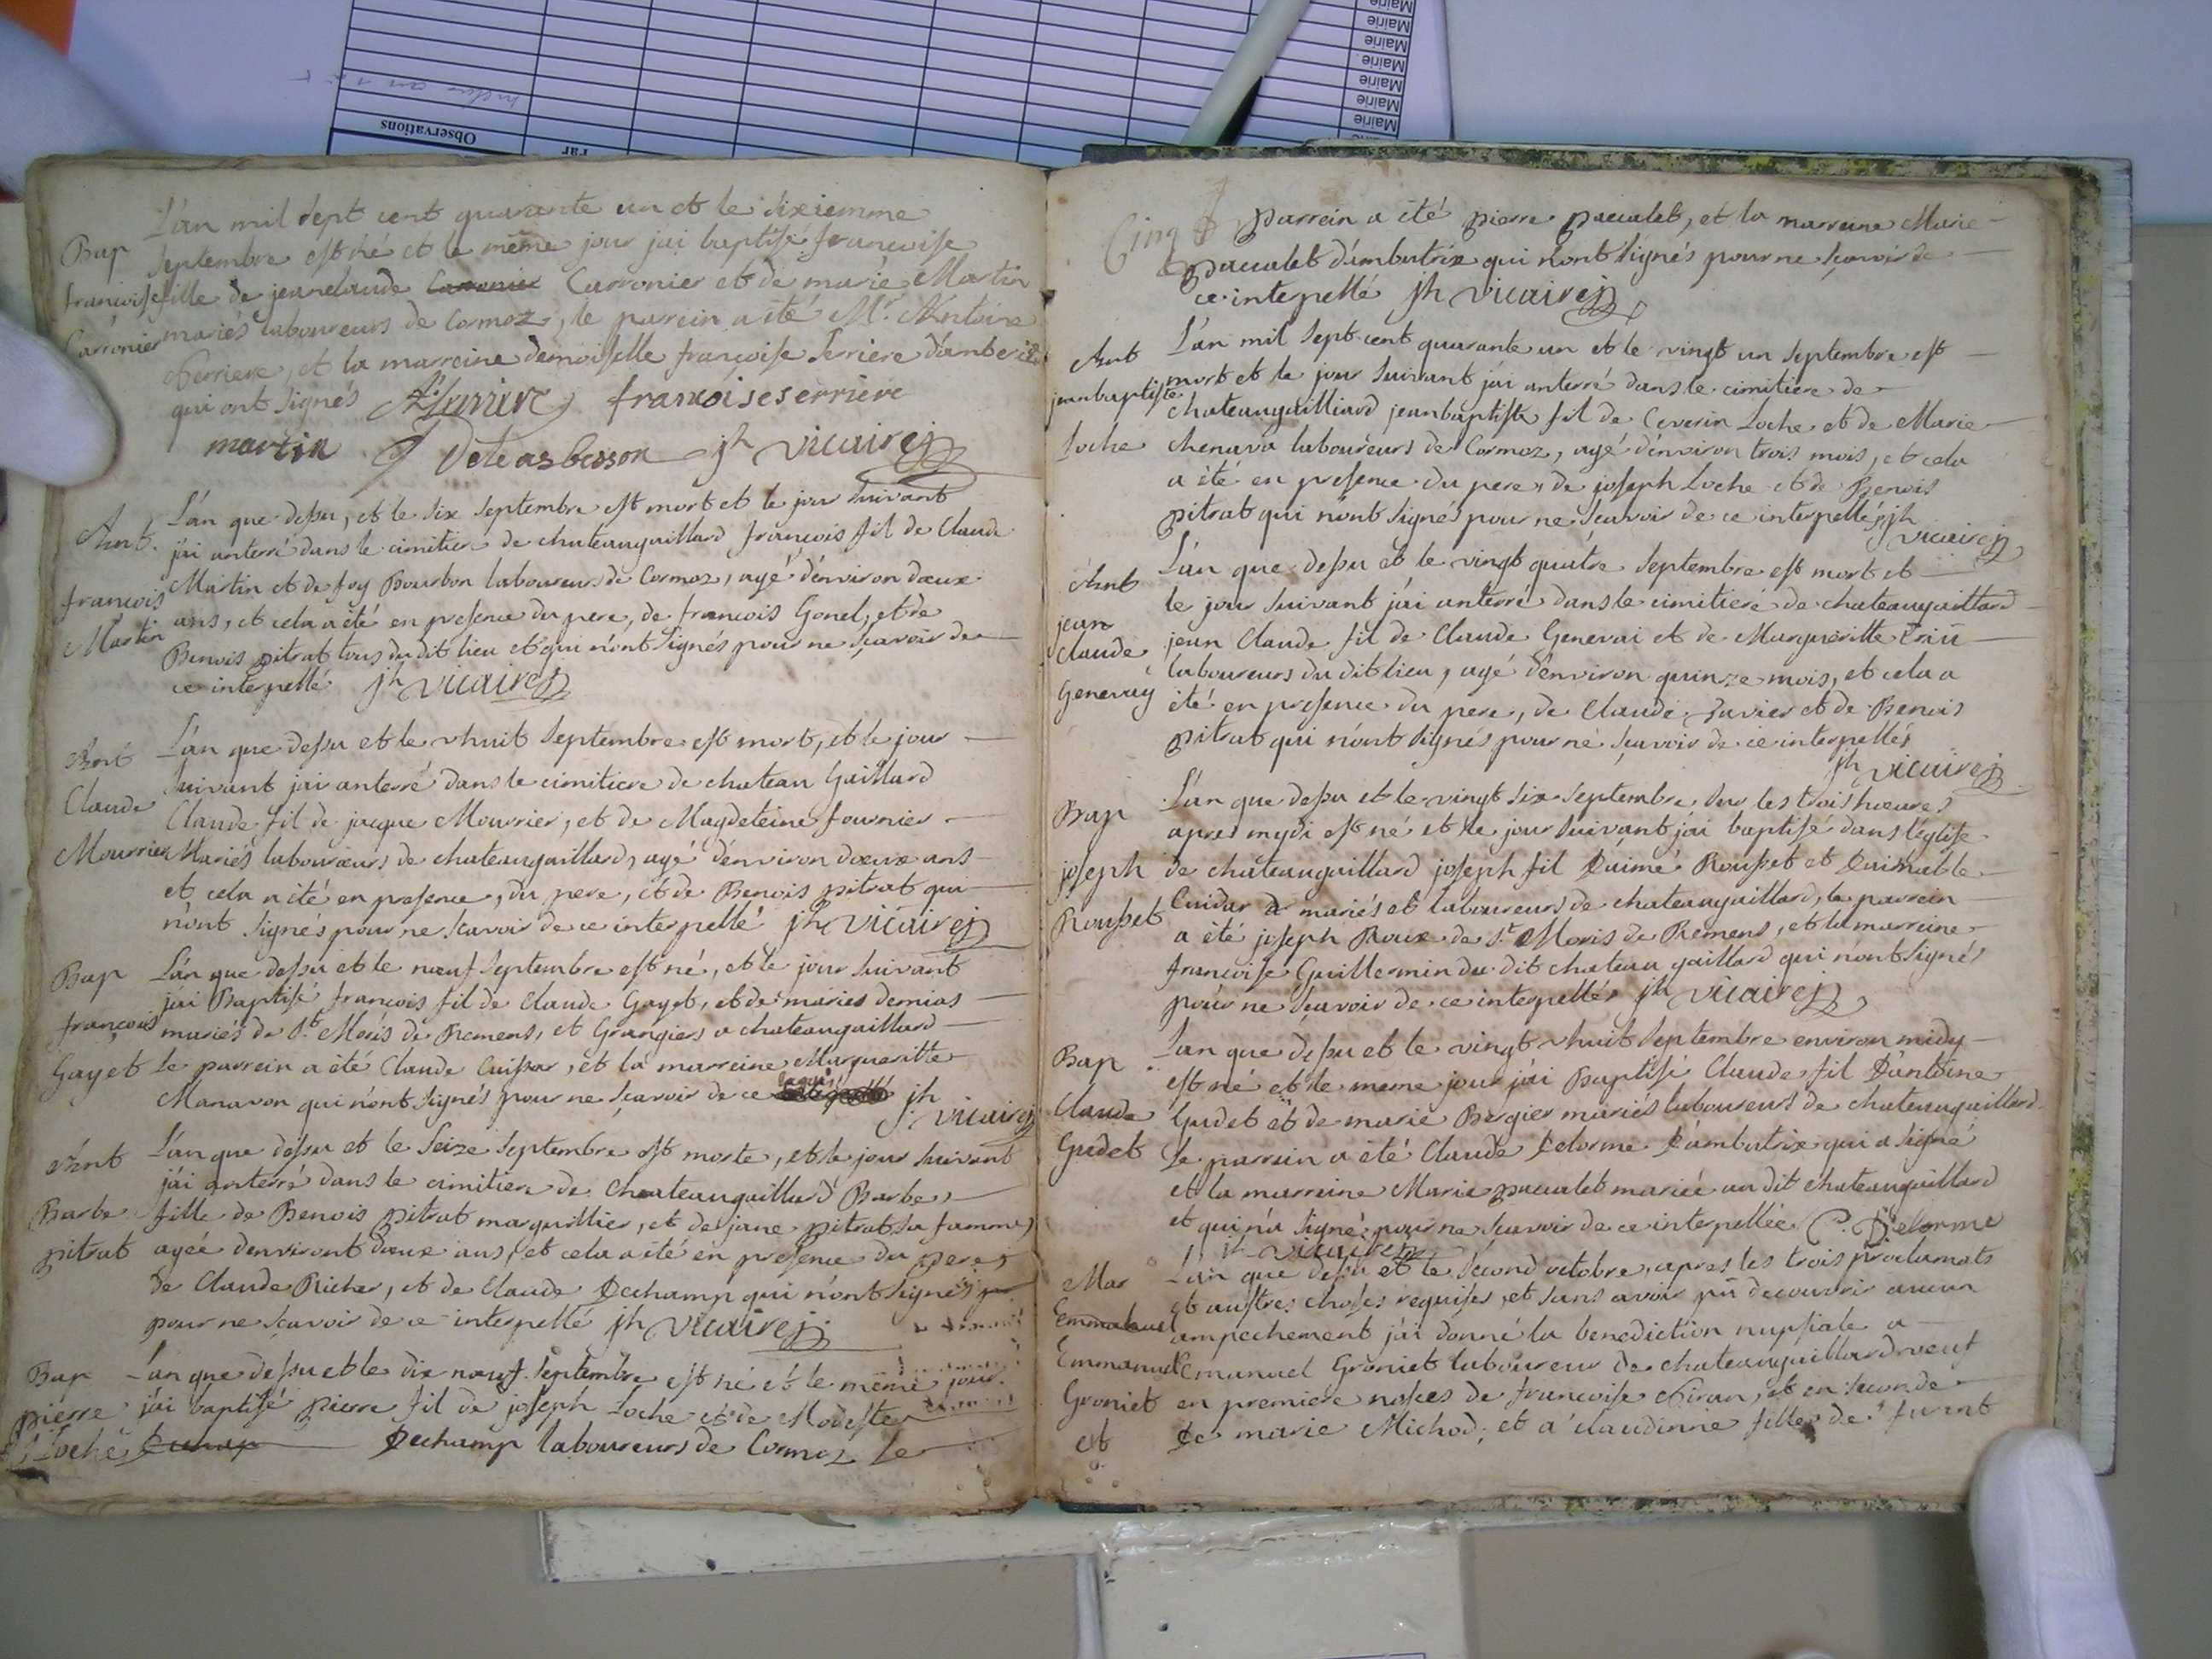 Mairie
Mairie
Mairie
Mairie
Mairie
Mairie
Observations
Par
L'an mil sept cent quarante un et le sixiemme
Bap septembre est né et le même jour j'ai baptisé francoise
francoise fille de jeanclaude Carronier Carronier et de marie Martin
Carronier mariés laboureurs de Cormoz, le parein a été Mr. Antoine
Serriere, et la marreine demoiselle françoise Serriere
qui ont signés françoise serriere
martin jh vicaire
L'an que dessu, et le six septembre est mort et le jour suivant
Ant. j'ai anterré dans le cimitiere de chateaugaillard françois fil de Claude
françois Martin et de foy Bourbon laboureurs de Cormoz, agé d'environ dœux
Martin ans, et cela a été en presence du pere, de francois Gonel, et de
Benois pitrat tous du dit lieu et qui n'ont signés pour ne sçavoir de
ce interpellé jh vicaire
Ant L'an que dessu et le vhuit septembre est mort, et le jour
suivant j'ai anterré dans le cimitiere de chateau Gaillard
Claude Claude fil de jacque Mourrier, et de Magdeleine fournier
Mourrier Mariés labourœurs de chateaugaillard, agé d'environ dœux ans
et cela a été en presence, du pere, et de Benois pitrat qui
n'ont signés pour ne scavoir de ce interpellé jh vicaire
Bap L'an que dessu et le nœuf septembre est né, et le jour suivant
j'ai Baptisé françois fil de Claude Gayet, et de maries demias
françois mariés de St. Moris de Remens, et Grangiers a chateaugaillard
Gayet le parrein a été Claude Cuissar, et la marreine Margueritte
Manavon qui n'ont signés pour ne sçavoir de ce jh
vicaire
Ant L'an que dessu et le seize septembre est morte, et le jour suivant
j'ai anterré dans le cimitiere de Chateaugaillard Barbe
Barbe fille de Benois pitrat marguillier, et de jane pitrat sa famme,
pitrat agée d'environt dœux ans, et cela a été en presence du pere,
de Claude Richer, et de Claude Dechamp qui n'ont signés
pour ne scavoir de ce interpellé jh vicaire
Bap L'an que dessu et le dix nœuf septembre est né et le même jour
pierre j'ai baptisé pierre fil de joseph Loche et de Modeste
Loche Dechamp laboureurs de Cormoz Le
Cinq parrein a été pierre pacalet, et la marreine Marie
pacalet d'ambutrix qui n'ont signés pour ne sçavoir de
ce interpellé jh vicaire
Ant L'an mil sept cent quarante un et le vingt un septembre est
jeanbaptiste mort et le jour suivant j'ai anterré dans le cimitiere de
chateaugailliard jeanbaptiste fil de Ceverin Loche et de Marie
Loche chenava laboureurs de Cormoz, agé d'environ trois mois, et cela
a été en presence du pere, de joseph Loche et de Benois
pitrat qui n'ont signés pour ne scavoir de ce interpellé jh
vicaire
Ant L'an que dessu et le vingt quatre septembre est mort et
le jour suivant j'ai anterré dans le cimitiere de chateaugaillard
jean
Claude jean Claude fil de Claude Genevai et de Margueritte
Genevay laboureurs du dit lieu, agé d'environ quinze mois, et cela a
été en presence du pere, de Claude Juvier et de Benois
pitrat qui n'ont signés pour ne scavoir de ce interpellés
jh vicaire
Bap L'an que dessu et le vingt six septembre sur les trois hœures
apres mydi est né et le jour suivant j'ai baptisé dans l'église
joseph de chateaugaillard joseph fil D'aimé Rousset et D'aimable
Rousset Cuidar mariés et laboureurs de chateaugaillard, le parrein
a été joseph Roux de St. Moris de Remens, et la marreine
francoise Guillermin du dit chateau gaillard qui n'ont signés
pour ne sçavoir de ce interpellés jh vicaire
Bap L'an que dessu et le vingt vhuit septembre environ midy
est né et le meme jour j'ai Baptisé Claude fil D'antoine
Claude Gudet et de marie Bergier mariés laboureurs de chateaugaillard
Gudet Le parrein a été Claude Delorme D'ambutrix qui a signé
et la marreine Marie pacalet mariée au dit chateaugaillard
et qui n'a signé pour ne scavoir de ce interpellée C. Delorme
jh vicaire
Mar L'an que dessu et le second octobre, apres les trois proclamats
Emmanuel et austres choses requises, et sans avoir pû decouvrir aucun
ampechement j'ai donné la benediction nupsiale a
Emmanuel Emanuel Groniet laboureur de chateaugaillard veuf
Groniet en premiere nosces de francoise Giran, et en seconde
et De marie Michod; et a claudinne fille de furent